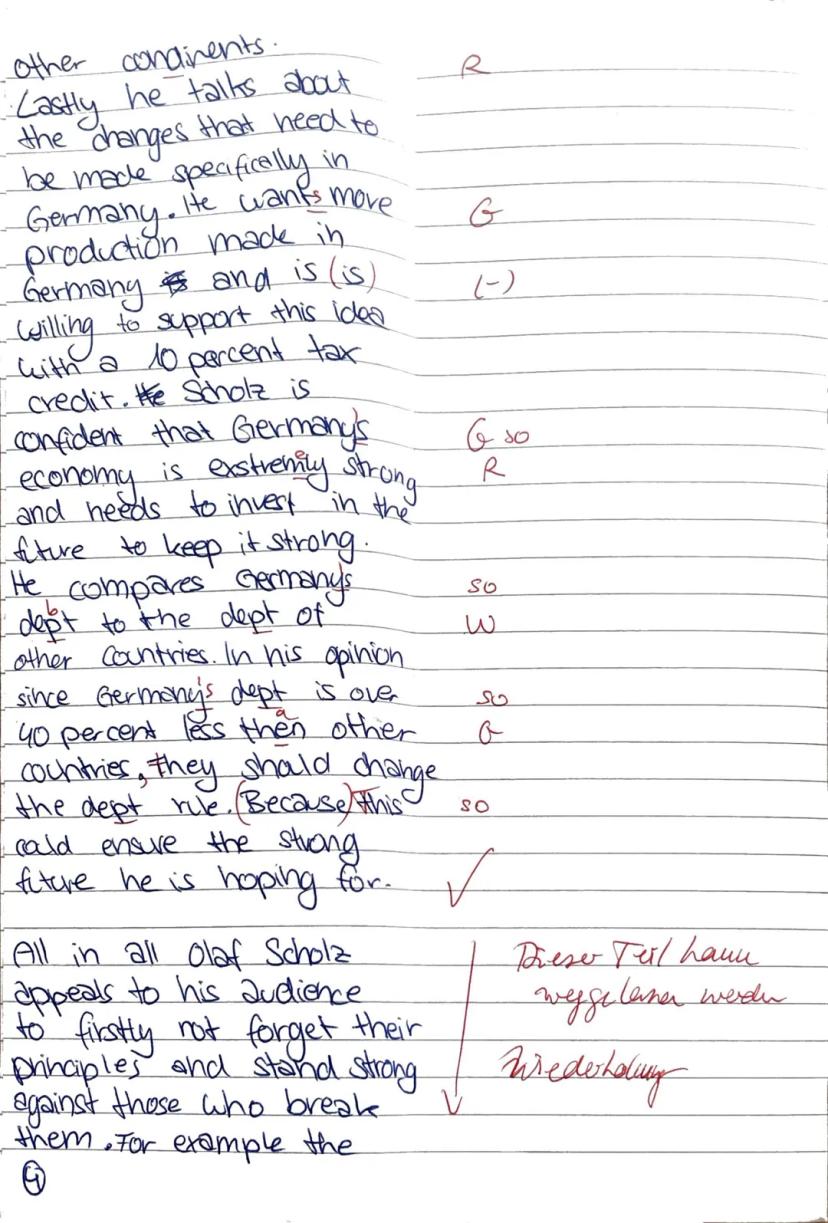 other condinents. R
Lastly he talks about
the changes that need to
be made specifically in
Germany. He wants more G
production made in
Germany and is (is) (-)
willing to support this idea
with a 10 percent tax
credit. He Scholz is
confident that Germany's G so
economy is exstremely strong R
and needs to invest in the
future to keep it strong.
He compares Germany's so
debt to the dept of W
other countries. In his opinion
since Germany's dept is over so
40 percent less than other G
countries, they should change
the dept rule. (Because) This so
could ensure the strong
future he is hoping for. ✓
All in all Olaf Scholz Dieser Teil kann
appeals to his audience weggelassen werden
to firstly not forget their
principles and stand strong Wiederholung
against those who break
them. For example the
4